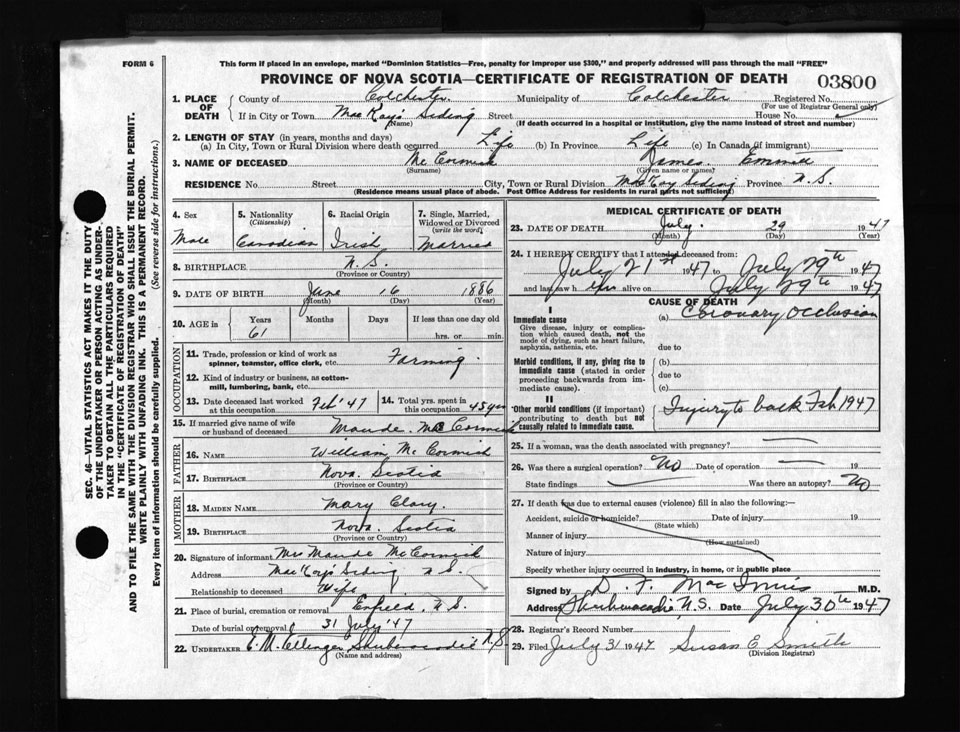 FORM 6
This form if placed in an envelope, marked "Dominion Statistics—Free, penalty for improper use $300," and properly addressed will pass through the mail "FREE"
PROVINCE OF NOVA SCOTIA—CERTIFICATE OF REGISTRATION OF DEATH
03800
1. PLACE OF DEATH { County of Colchester Municipality of Colchester Registered No.
(For use of Registrar General only)
If in City or Town MacKay's Siding Street House No.
(Name) (If death occurred in a hospital or institution, give the name instead of street and number)
2. LENGTH OF STAY (in years, months and days)
(a) In City, Town or Rural Division where death occurred Life (b) In Province Life (c) In Canada (if immigrant)
3. NAME OF DECEASED McCormick James Emmett
(Surname) (Given name or names)
RESIDENCE No. Street City, Town or Rural Division MacKay Siding Province N.S.
(Residence means usual place of abode. Post Office Address for residents in rural parts not sufficient)
4. Sex 5. Nationality (Citizenship) 6. Racial Origin 7. Single, Married, Widowed or Divorced (write the word)
Male Canadian Irish Married
8. BIRTHPLACE N.S.
(Province or Country)
9. DATE OF BIRTH June 16 1886
(Month) (Day) (Year)
10. AGE in { Years Months Days If less than one day old
61 hrs. or min.
OCCUPATION
11. Trade, profession or kind of work as spinner, teamster, office clerk, etc. Farming.
12. Kind of industry or business, as cotton-mill, lumbering, bank, etc.
13. Date deceased last worked at this occupation Feb' 47 14. Total yrs. spent in this occupation 45 yrs
15. If married give name of wife or husband of deceased Maude McCormick
FATHER
16. NAME William McCormick
17. BIRTHPLACE Nova Scotia
(Province or Country)
MOTHER
18. MAIDEN NAME Mary Clary.
19. BIRTHPLACE Nova. Scotia
(Province or Country)
20. Signature of informant Mrs Maude McCormick
Address MacKay's Siding N.S.
Relationship to deceased Wife
21. Place of burial, cremation or removal Enfield, N.S.
Date of burial or removal 31 July '47
22. UNDERTAKER E. M. Ettinger Shubenacadie N.S.
(Name and address)
MEDICAL CERTIFICATE OF DEATH
23. DATE OF DEATH July. 29 1947
(Month) (Day) (Year)
24. I HEREBY CERTIFY that I attended deceased from:
July 21st 1947 to July 29th 1947
and last saw him alive on July 29th 1947
CAUSE OF DEATH
I
Immediate cause (a) Coronary Occlusion
Give disease, injury or complication which caused death, not the mode of dying, such as heart failure, asphyxia, asthenia, etc.
due to
Morbid conditions, if any, giving rise to immediate cause (stated in order proceeding backwards from immediate cause).
(b)
due to
(c)
II
Other morbid conditions (if important) contributing to death but not causally related to immediate cause.
Injury to back Feb 1947
25. If a woman, was the death associated with pregnancy?
26. Was there a surgical operation? No Date of operation 19
State findings Was there an autopsy? No
27. If death was due to external causes (violence) fill in also the following:—
Accident, suicide or homicide? Date of injury 19
(State which)
Manner of injury
(How sustained)
Nature of injury
Specify whether injury occurred in industry, in home, or in public place
Signed by D. F. MacInnis M.D.
Address Shubenacadie N.S. Date July 30th 1947
28. Registrar's Record Number
29. Filed July 31 1947 Susan E Smith
(Division Registrar)
SEC. 46—VITAL STATISTICS ACT MAKES IT THE DUTY
OF THE UNDERTAKER OR PERSON ACTING AS UNDER-
TAKER TO OBTAIN ALL THE PARTICULARS REQUIRED
IN THE "CERTIFICATE OF REGISTRATION OF DEATH"
AND TO FILE THE SAME WITH THE DIVISION REGISTRAR WHO SHALL ISSUE THE BURIAL PERMIT.
WRITE PLAINLY WITH UNFADING INK. THIS IS A PERMANENT RECORD.
Every item of information should be carefully supplied. (See reverse side for instructions.)